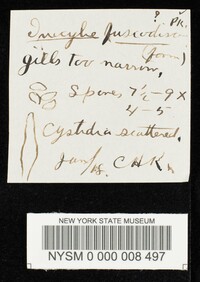 ? Pk.
Inocybe fuscodisca
(form)
gills too narrow,
Spores 7½-9 X
4-5
Cystidia scattered,
Jan/18. C.H.K.
NEW YORK STATE MUSEUM
NYSM 0 000 008 497